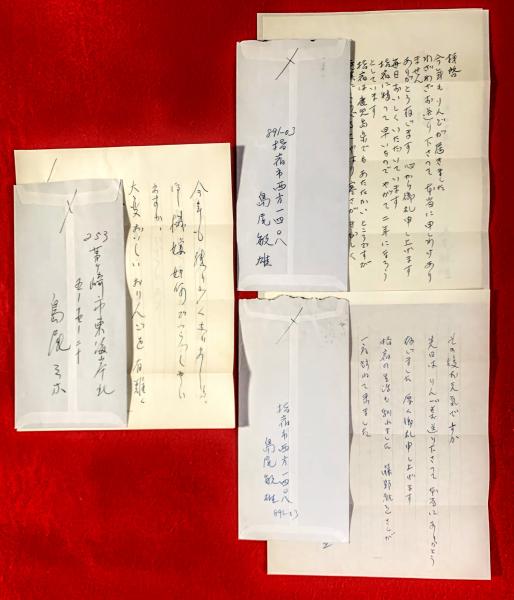 拝啓
今年もりんごが届きました
わざわざお送り下さって本当に申しわけあり
ません
ありがとう存じます 心から御礼申し上げます
毎日おいしくいただいています
指宿に移って早いものでやがて二年になろう
としています
指宿は鹿児島県でもあたたかいところですが
891-03
指宿市西方一四〇八
島尾敏雄
その後お元気ですか
先日はりんごをお送り下さって本当にありがとう
存じました 厚く御礼申し上げます
指宿の生活も馴れました
一度訪れて来ました
指宿市西方一四〇八
島尾敏雄
891-03
今年も残り少くなりました
皆様如何でいらっしゃい
ますか
大変おいしいおりんごを有難く
253
茅ヶ崎市東海岸北
五ー五ー二十
島尾ミホ